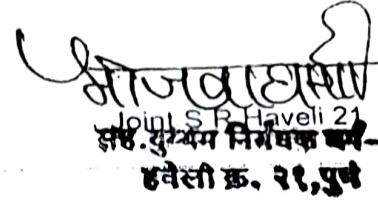 Joint S R Haveli 21
सह. दुय्यम निबंधक वर्ग-
हवेली क्र. २१,पुणे